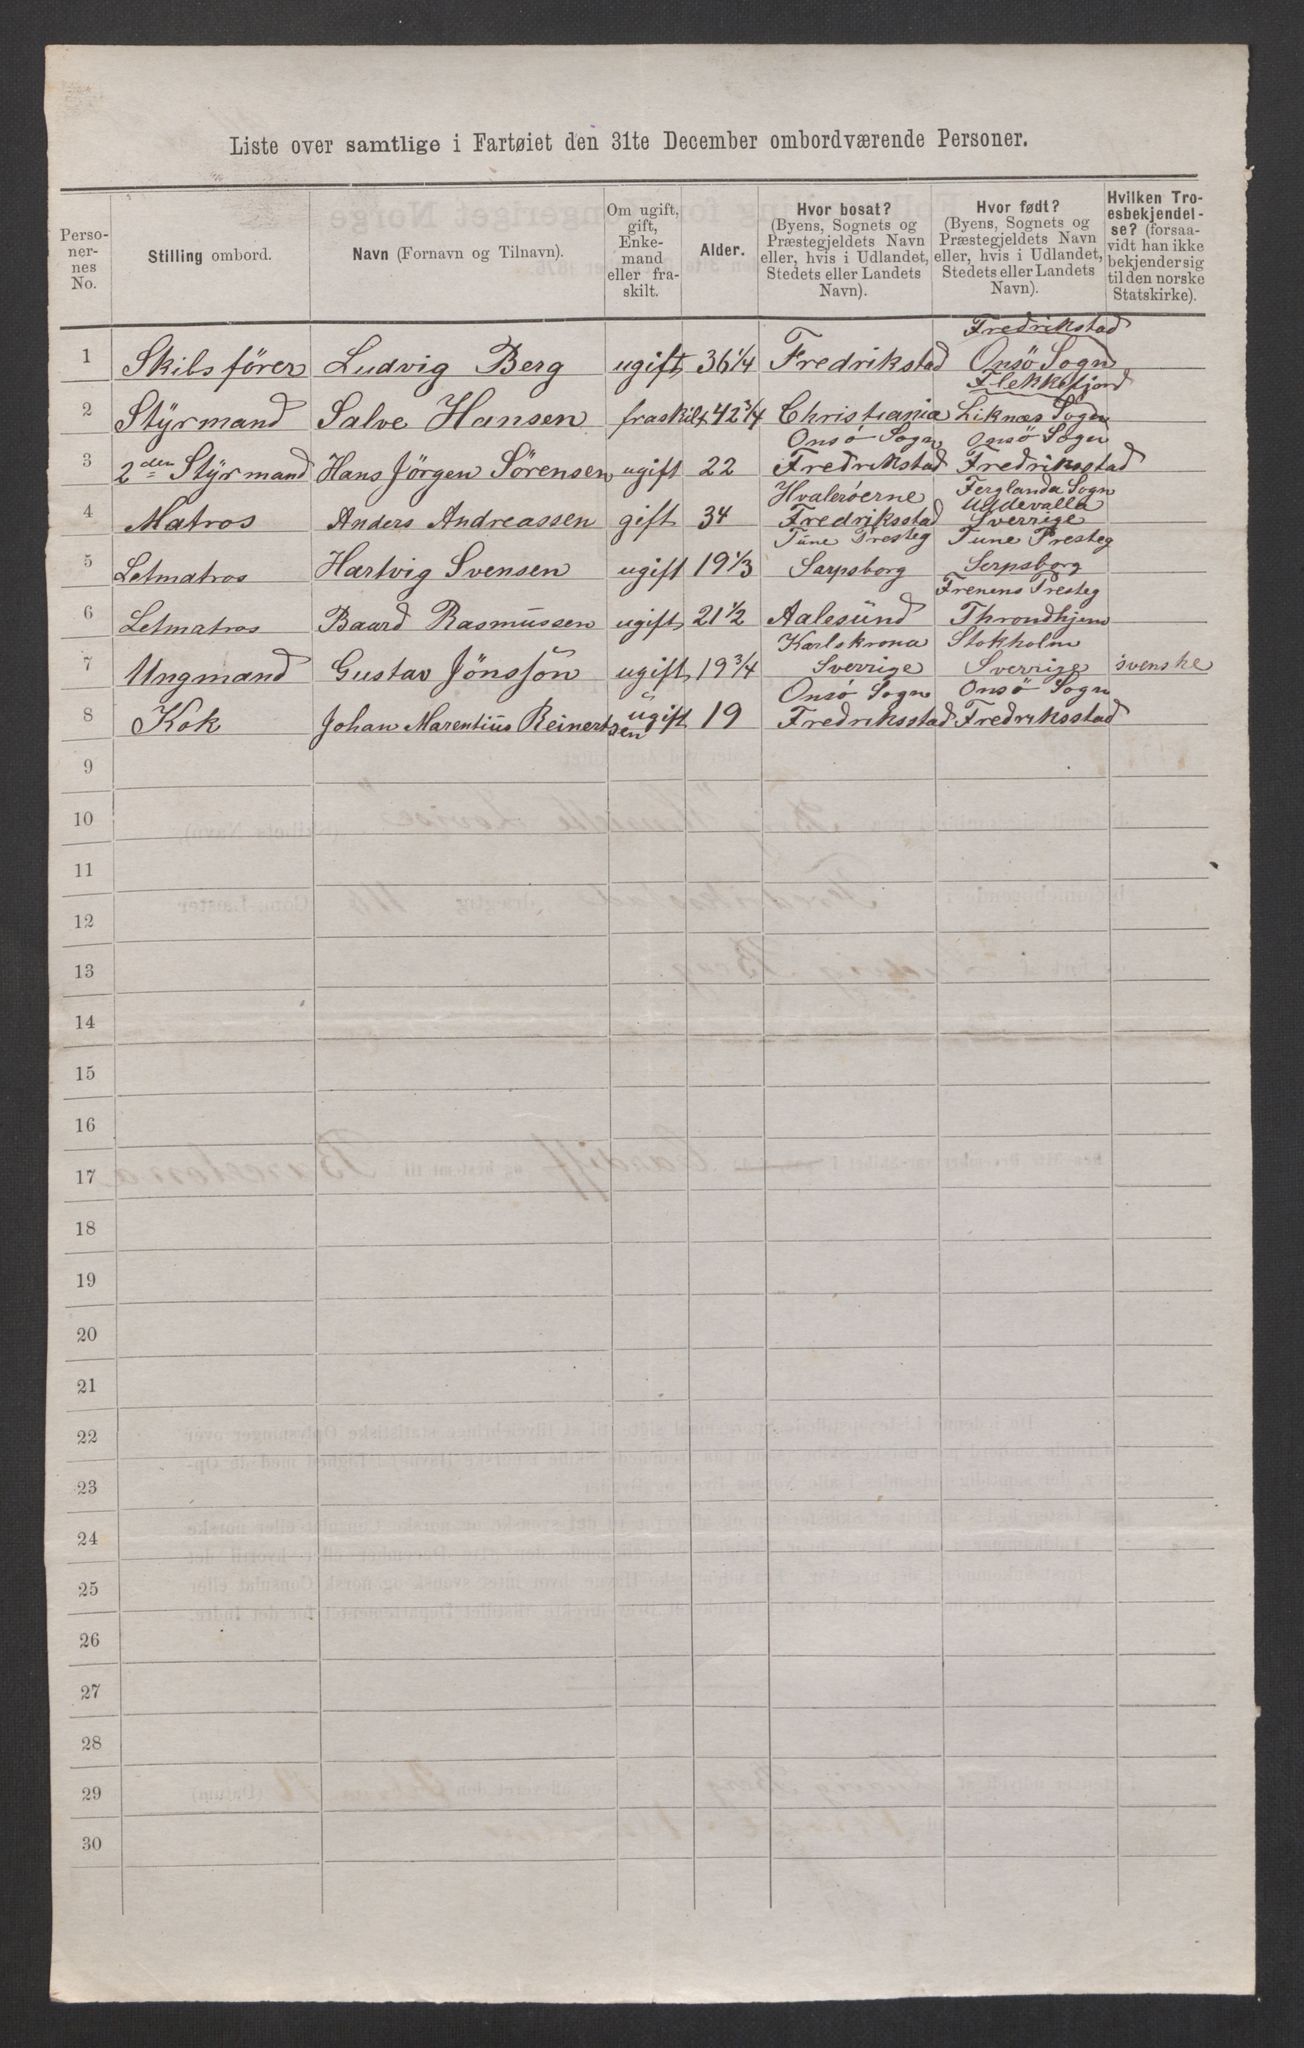 Liste over samtlige i Fartøiet den 31te December ombordværende Personer.
Perso-
ner-
nes
No.
Stilling ombord.
Navn (Fornavn og Tilnavn).
Om ugift,
gift,
Enke-
mand
eller fra-
skilt.
Alder.
Hvor bosat?
(Byens, Sognets og
Præstegjeldets Navn
eller, hvis i Udlandet,
Stedets eller Landets
Navn).
Hvor født?
(Byens, Sognets og
Præstegjeldets Navn
eller, hvis i Udlandet,
Stedets eller Landets
Navn).
Hvilken Tro-
esbekjendel-
se? (forsaa-
vidt han ikke
bekjender sig
til den norske
Statskirke).
Fredrikstad
1 Skibsförer Ludvig Berg ugift 36 1/4 Fredrikstad Onsö Sogn
Flekkefjord
2 Styrmand Salve Hansen fraskilt 42 3/4 Christiania Liknæs Sogn
Onsö Sogn Onsö Sogn
3 2den Styrmand Hans Jörgen Sörensen ugift 22 Fredrikstad Fredriksstad
Hvalerøerne Ferglanda Sogn
Uddevalla
4 Matros Anders Andreassen gift 34 Fredriksstad Sverrige
Tune Presteg Tune Presteg
5 Letmatros Hartvig Svensen ugift 19 1/3 Sarpsborg Serpsborg
Frenens Presteg
6 Letmatros Baard Rasmussen ugift 21 1/2 Aalesund Throndhjem
Karlskrona Stokholm
7 Ungmand Gustav Jönsson ugift 19 3/4 Sverrige Sverrige svenske
Onsö Sogn Onsö Sogn
8 Kok Johan Marentius Reinertsen ugift 19 Fredriksstad Fredriksstad
9
10
11
12
13
14
15
16
17
18
19
20
21
22
23
24
25
26
27
28
29
30